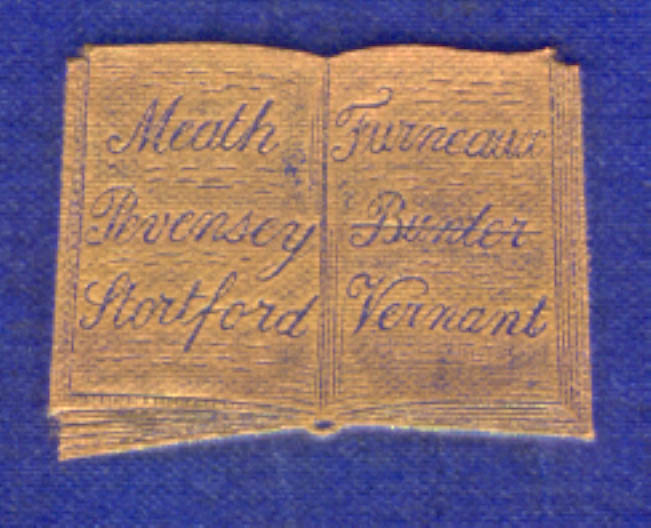 Meath
Pevensey
Stortford
Furneaux
Bunter
Vernant